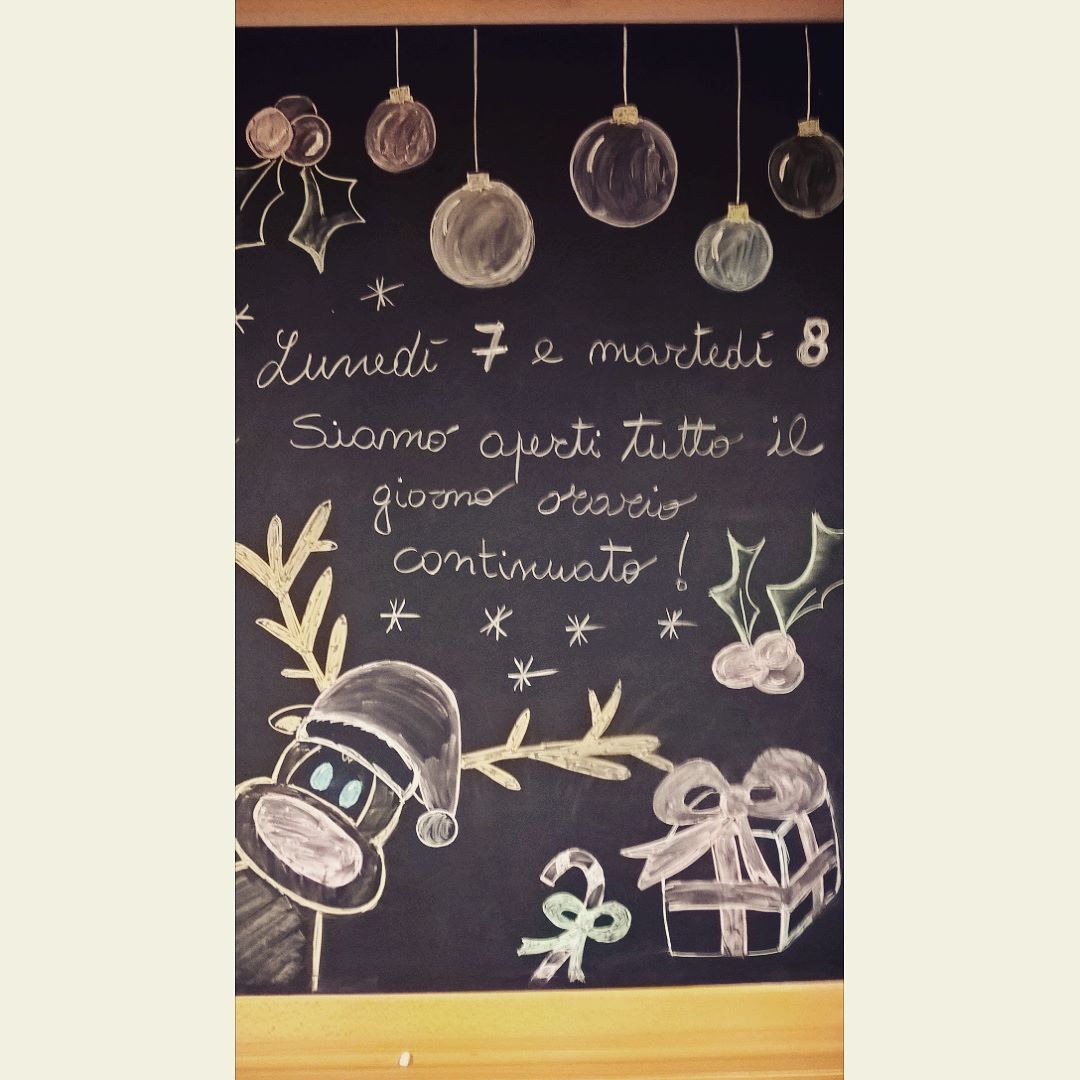 Lunedí 7 e martedí 8
Siamo aperti tutto il
giorno orario
continuato!